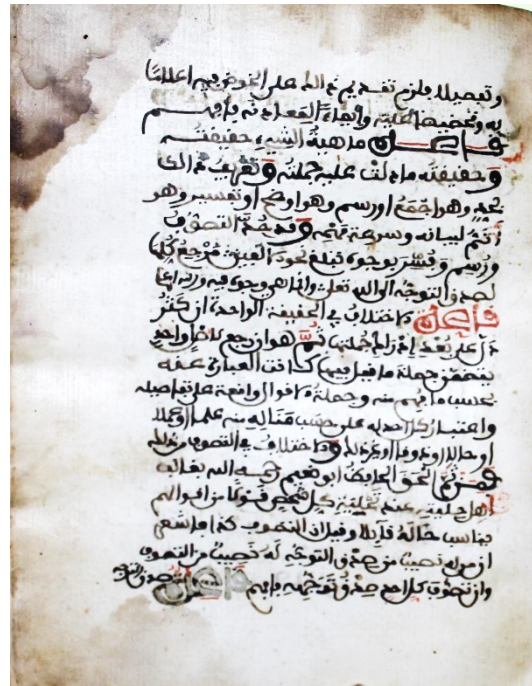 وتفصيلا فلزم تقديم ذلك على الخوض فيه اعلاما
به وتحضيضا عليه وايماء فافهم
قاعدة ماهية الشيء حقيقته
وحقيقته ما دلت عليه جملته وتعريف ذلك
بحد وهو اجمع او رسم وهو اوضح او تفسير وهو
أتم لبيانه وسرعة فهمه وقد حد التصوف
ورسم وفسر بوجوه تبلغ نحو الالفين مرجع كلها
لصدق التوجه الى الله تعلى وانما هي وجوه فيه
قاعدة الاختلاف في الحقيقة الواحدة ان كثر
دل على بعد ادراك جملتها ثم هو ان رجع لاصل واحد
يتضمن جملة ما قيل فيها كانت العبارة عنه
بحسب ما فهم منه وجملة الاقوال واقعة على تفاصيله
واعتبار كل احد له على حسب مناله منه علما او عملا
او حالا او ذوقا او غير ذلك والاختلاف في التصوف من ذلك
فمن ثم الحق الحافظ ابو نعيم رحمه الله بغالب
اهل حليته عند تحليته كل شخص قولا من اقوالهم
يناسب حاله قايلا وقيل ان التصوف كذا فاشعر
ان من له نصيب من صدق التوجه له نصيب من التصوف
وان تصوف كل احد صدق توجهه فافهم قاعدة صدق التوجه